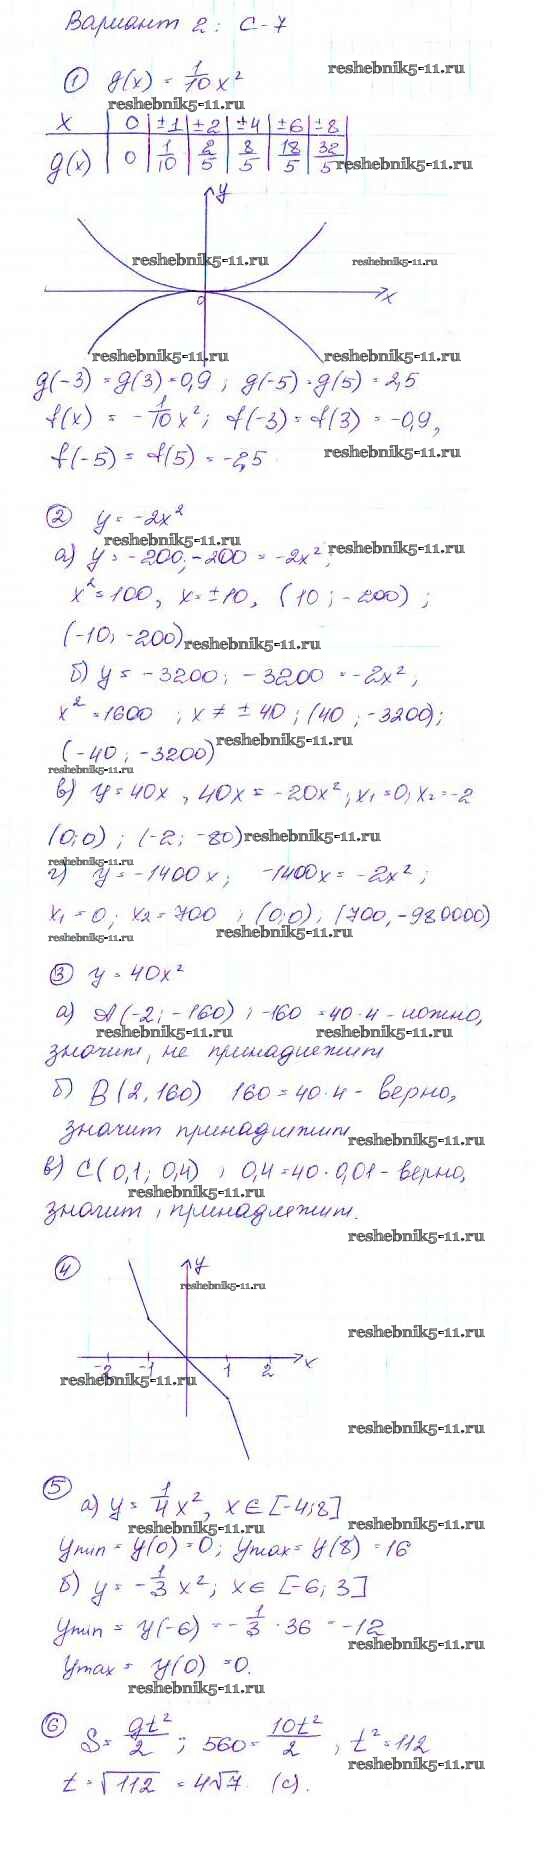 Вариант 2: С-7
① g(x) = 1/10 x²
reshebnik5-11.ru
reshebnik5-11.ru
x | 0 | ±1 | ±2 | ±4 | ±6 | ±8
g(x) | 0 | 1/10 | 2/5 | 8/5 | 18/5 | 32/5
reshebnik5-11.ru
y
reshebnik5-11.ru
reshebnik5-11.ru
0 x
reshebnik5-11.ru
reshebnik5-11.ru
g(-3) = g(3) = 0,9 ; g(-5) = g(5) = 2,5
f(x) = -1/10 x²; f(-3) = f(3) = -0,9,
f(-5) = f(5) = -2,5
reshebnik5-11.ru
② y = -2x²
reshebnik5-11.ru
а) y = -200; -200 = -2x²;
reshebnik5-11.ru
x² = 100, x = ±10, (10; -200) ;
(-10; -200)
reshebnik5-11.ru
б) y = -3200; -3200 = -2x²;
x² = 1600 ; x ≠ ±40 ; (40 ; -3200);
reshebnik5-11.ru
(-40 ; -3200)
reshebnik5-11.ru
в) y = 40x , 40x = -20x²; x₁ = 0; x₂ = -2
(0;0) ; (-2; -80)
reshebnik5-11.ru
reshebnik5-11.ru
г) y = -1400x; -1400x = -2x² ;
x₁ = 0; x₂ = 700 ; (0;0), (700, -980000)
reshebnik5-11.ru
reshebnik5-11.ru
③ y = 40x²
а) A (-2; -160) ; -160 = 40·4 - ложно,
reshebnik5-11.ru
reshebnik5-11.ru
значит, не принадлежит
б) B (2, 160) 160 = 40·4 - верно,
значит принадлежит
reshebnik5-11.ru
в) C (0,1; 0,4) ; 0,4 = 40·0,01 - верно,
reshebnik5-11.ru
значит, принадлежит.
reshebnik5-11.ru
④
y
reshebnik5-11.ru
reshebnik5-11.ru
-2 -1 1 2 x
reshebnik5-11.ru
reshebnik5-11.ru
⑤ а) y = 1/4 x², x ∈ [-4; 8]
reshebnik5-11.ru
reshebnik5-11.ru
ymin = y(0) = 0; ymax = y(8) = 16
б) y = -1/3 x²; x ∈ [-6; 3]
reshebnik5-11.ru
ymin = y(-6) = -1/3 · 36 = -12
reshebnik5-11.ru
ymax = y(0) = 0.
reshebnik5-11.ru
⑥ S = gt²/2 ; 560 = 10t²/2 , t² = 112
t = √112 = 4√7 (с).